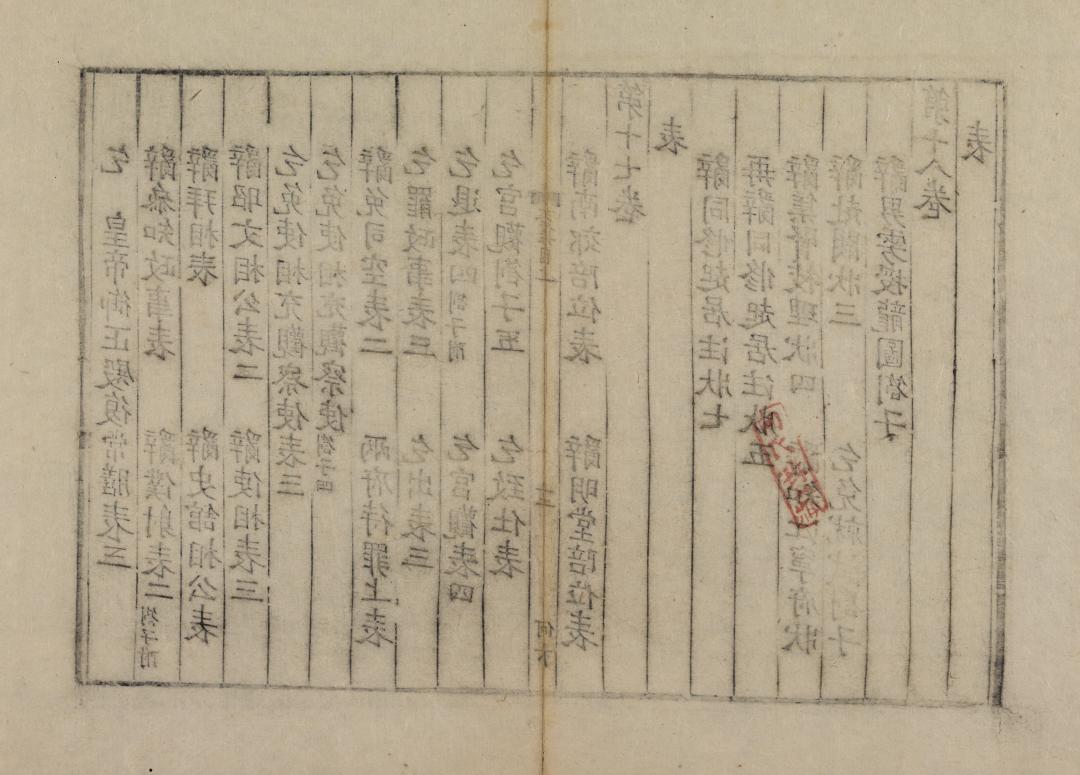 乞　皇帝御正殿復常膳表三
辭參知政事表　辭僕射表二劄子附
辭拜相表　辭史館相公表
辭昭文相公表二　辭使相表三
乞免使相充觀察使表三
乞免使相充觀察使劄子四
辭免司空表二　兩府待罪上表
乞罷政事表三　乞出表三
乞退表四劄子附　乞宮觀表四
乞宮觀劄子五　乞致仕表
目上　二　何卞
辭南郊陪位表　辭明堂陪位表
第十七卷
表
辭同修起居注狀七
再辭同修起居注狀五
辭集賢校理狀四　知江寧府狀
辭赴闕狀三　乞免就劄子
辭男雱授龍圖劄子
第十八卷
表